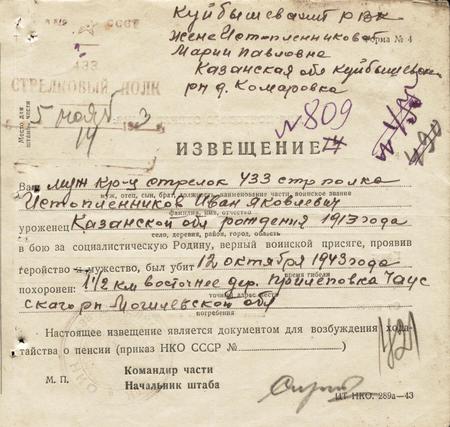 СССР
Куйбышевскит РВК
Жене Истопленниковой
Форма № 4
Марии Павловне
433
Казанская обл Куйбышевски
СТРЕЛКОВЫЙ ПОЛК
рн д. Комаровка
5 нояб 3
Место для штампа части
№ 809
ИЗВЕЩЕНИЕ
Ваш муж кр-ц стрелок 433 стр полка
муж, отец, сын, брат, должность, наименование части, воинское звание
Истопленников Иван Яковлевич
фамилия, имя, отчество
уроженец Казанской обл рождения 1913 года
село, деревня, район, город, область
в бою за социалистическую Родину, верный воинской присяге, проявив
геройство и мужество, был убит 12 октября 1943 года
время гибели
похоронен: 1 1/2 км восточнее дер. Прилеповка Чаус
точный адрес места
скаго рн Могилевской обл
погребения
Настоящее извещение является документом для возбуждения хода-
тайства о пенсии (приказ НКО СССР №
)
421
Командир части
М. П.
Начальник штаба
ШТ НКО. 289а—43